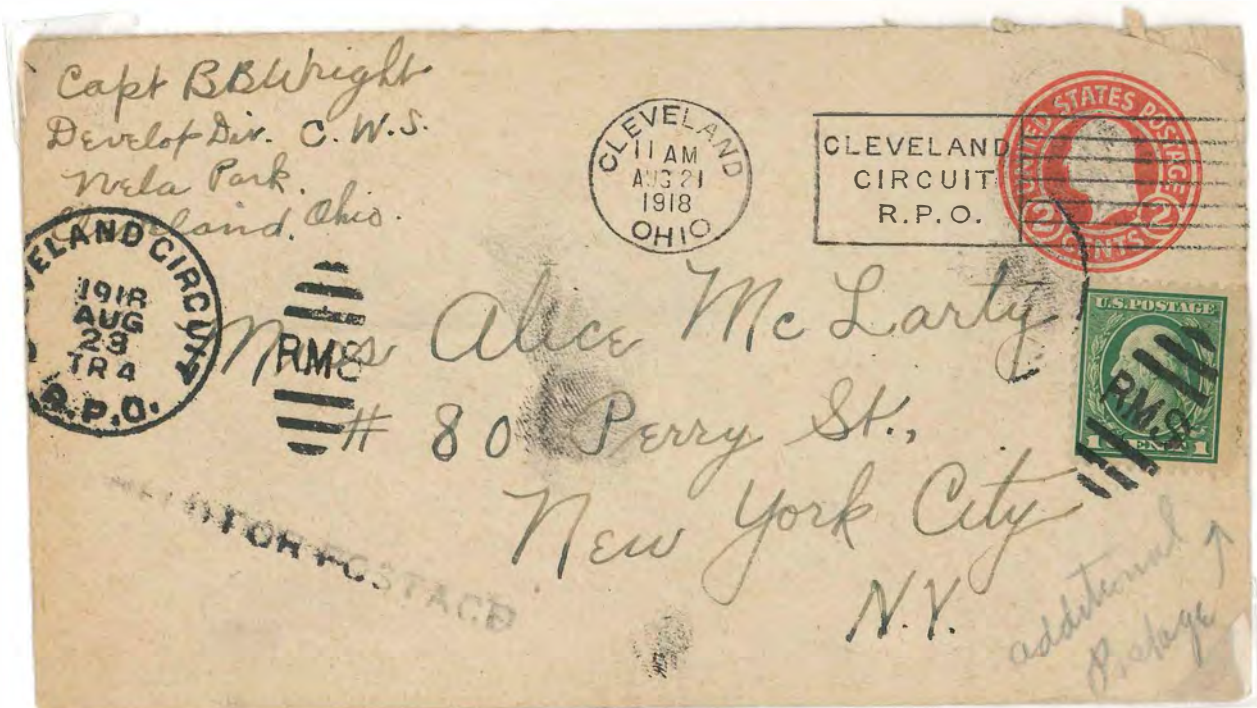 Capt BBWright
Develop Div. C. W. S.
Nela Park.
Cleveland, Ohio.
CLEVELAND
11 AM
AUG 21
1918
OHIO
CLEVELAND
CIRCUIT
R.P.O.
UNITED STATES POSTAGE
2 CENTS 2
CLEVELAND CIRCUIT
1918
AUG
23
TR 4
R.P.O.
RMS
Miss Alice McLarty
# 80 Perry St.,
New York City
N.Y.
U.S. POSTAGE
1 CENT 1
R.M.S.
FOR POSTAGE
additional
Postage